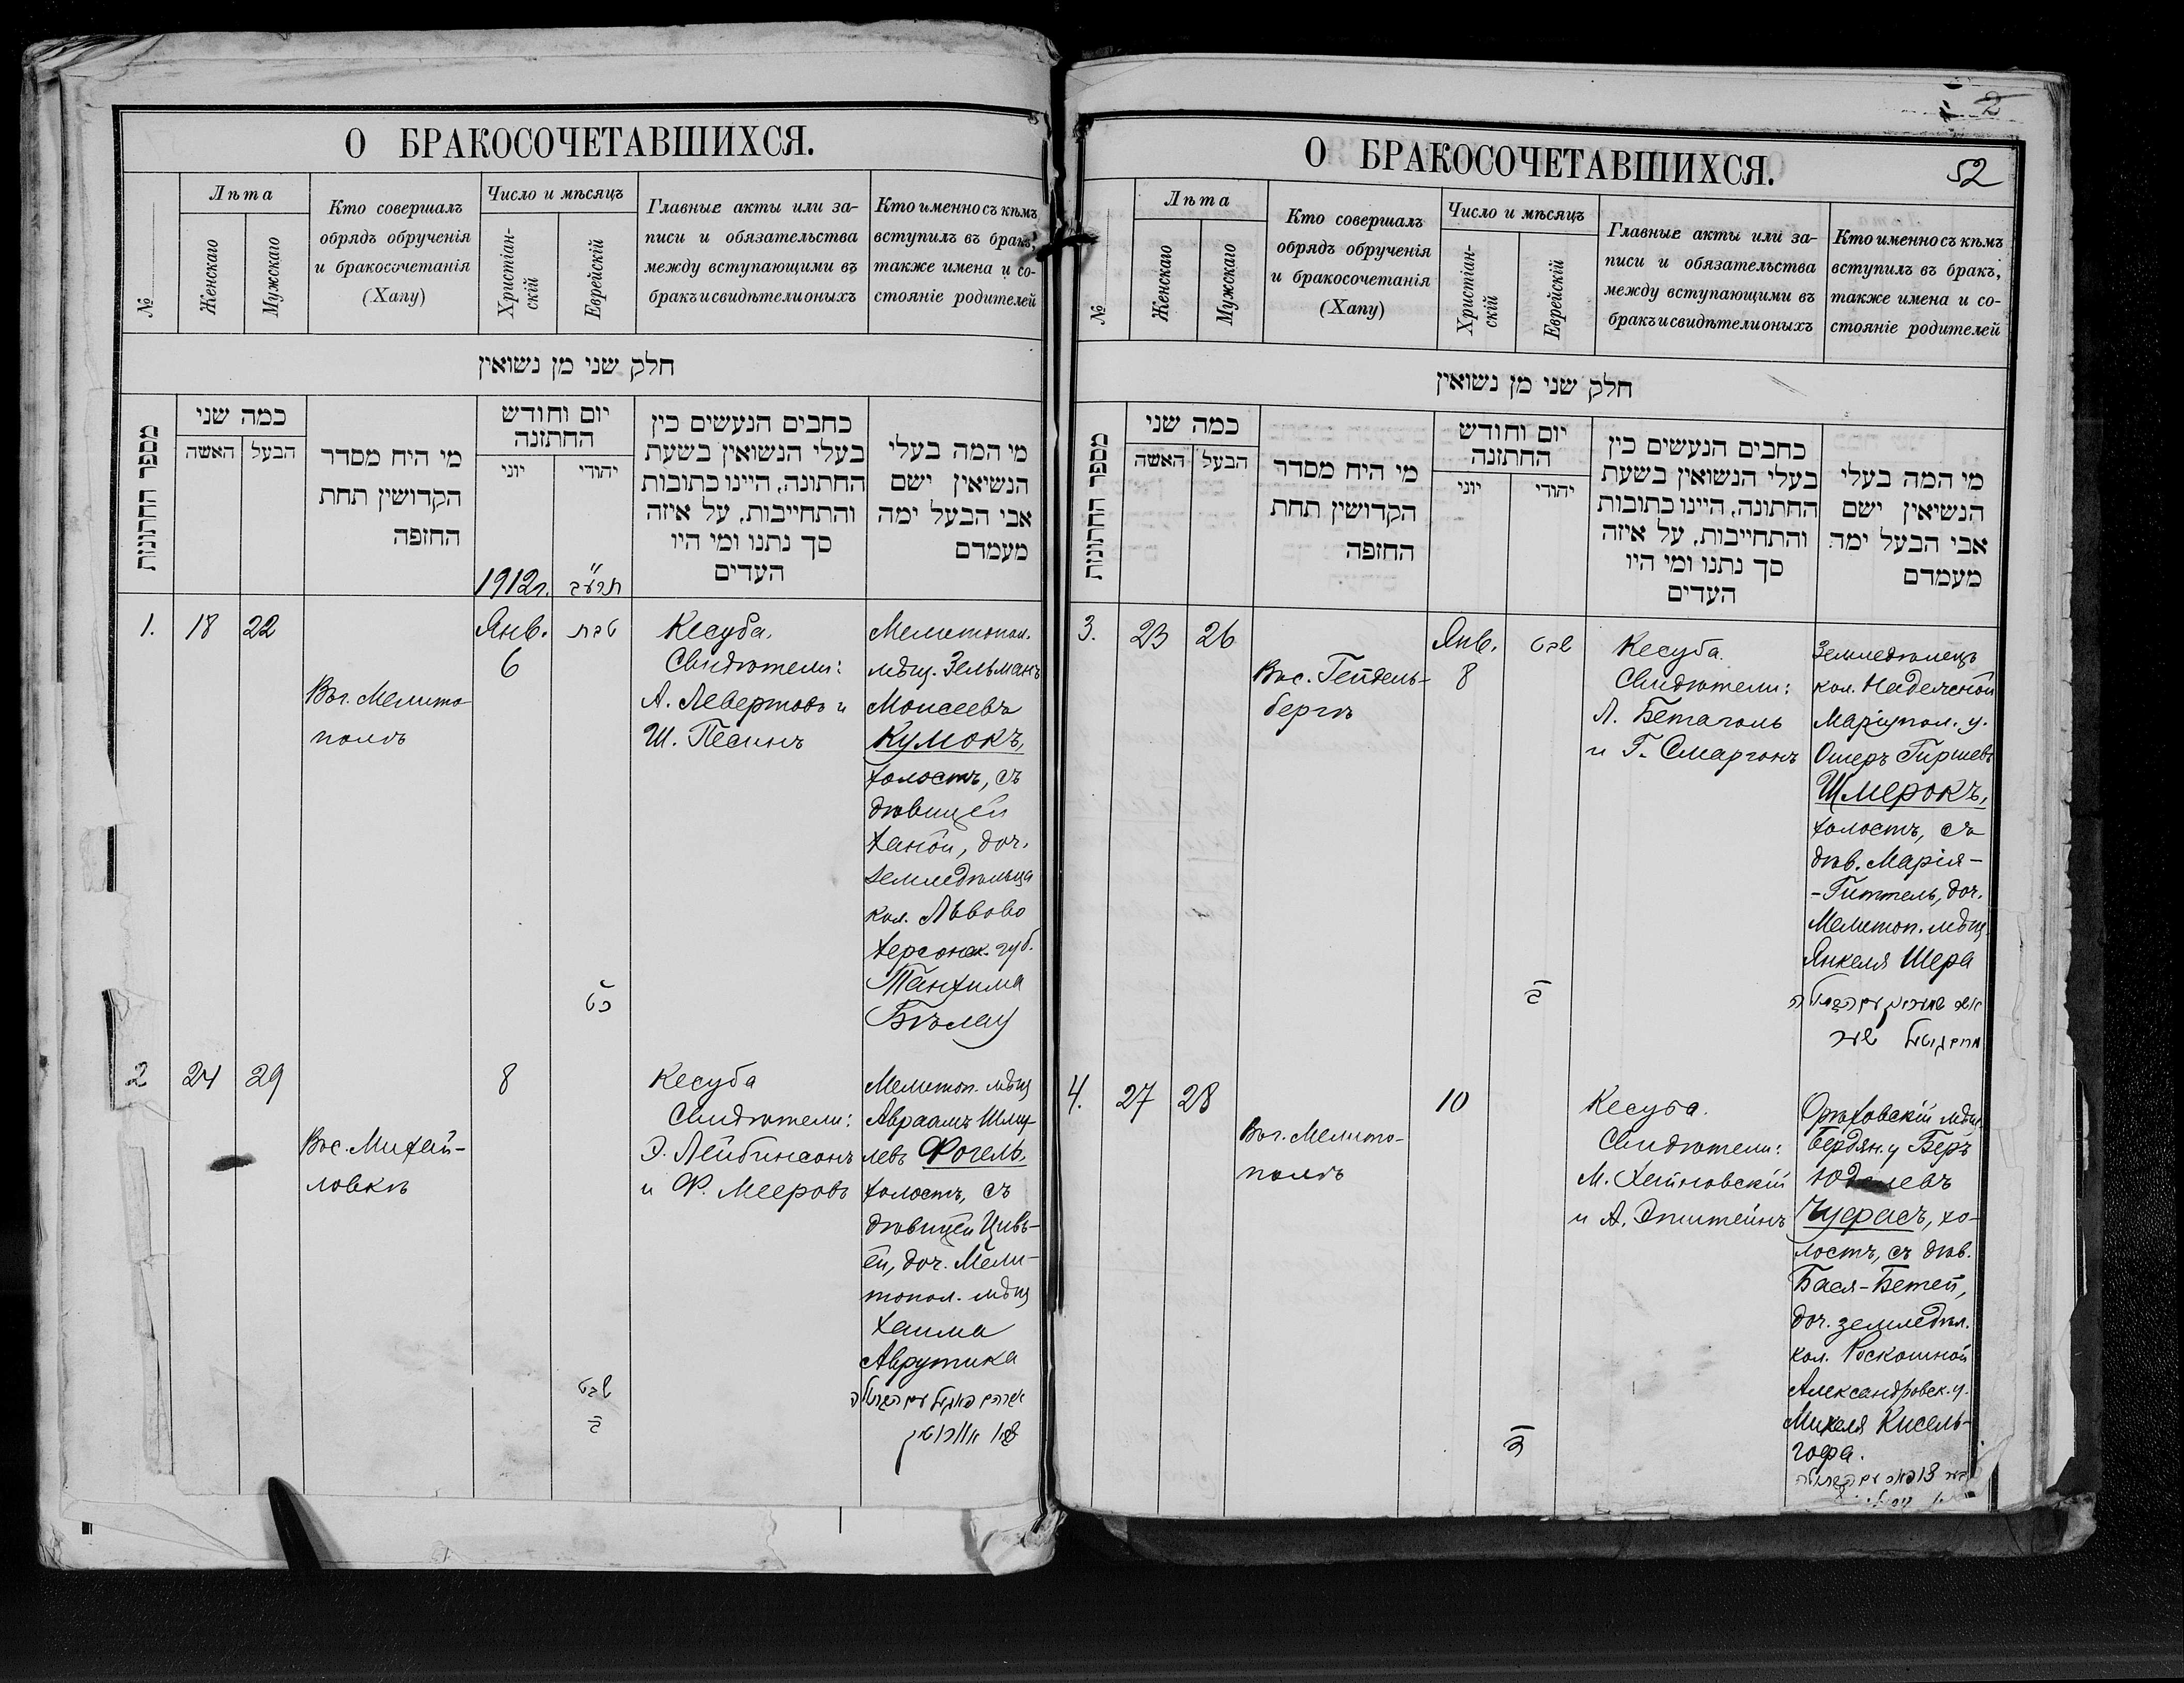 О БРАКОСОЧЕТАВШИХСЯ.
№
Лѣта
Женскаго
Мужскаго
Кто совершалъ
обрядъ обрученія
и бракосочетанія
(Хапу)
Число и мѣсяцъ
Христіан-
скій
Еврейскій
Главные акты или за-
писи и обязательства
между вступающими въ
бракъ и свидѣтели оныхъ
Кто именно съ кѣмъ
вступилъ въ бракъ,
также имена и со-
стояніе родителей
חלק שני מן נשואין
מספר החתונות
כמה שני
האשה
הבעל
מי היח מסדר
הקדושין תחת
החופה
יום וחודש
החתונה
יוני
יהודי
כתבים הנעשים בין
בעלי הנשואין בשעת
החתונה, היינו כתובות
והתחייבות, על איזה
סך נתנו ומי היו
העדים
מי המה בעלי
הנשיאין ישם
אבי הבעל ימה
מעמדם
1912г.
תרע״ב
1.
18
22
Въ г. Мелито-
полѣ
Янв.
6
טבת
כט
Кесуба.
Свидѣтели:
А. Левертовъ и
Ш. Песинъ
Мелитопол.
мѣщ. Зельманъ
Моисеевъ
Кумокъ,
холостъ, съ
дѣвицей
Ханой, доч.
земледѣльца
кол. Львово
Херсонск. губ.
Танхима
Бѣлау
2
24
29
Въ с. Михай-
ловкѣ
8
שבט
ב
Кесуба
Свидѣтели:
Э. Лейбинсонъ
и Ф. Мееровъ
Мелитоп. мѣщ
Авраамъ Шлиу-
левъ Фогель,
холостъ, съ
дѣвицей Цивь-
ей, доч. Мели-
топол. мѣщ
Хаима
Аврутика
О БРАКОСОЧЕТАВШИХСЯ.
2
52
№
Лѣта
Женскаго
Мужскаго
Кто совершалъ
обрядъ обрученія
и бракосочетанія
(Хапу)
Число и мѣсяцъ
Христіан-
скій
Еврейскій
Главные акты или за-
писи и обязательства
между вступающими въ
бракъ и свидѣтели оныхъ
Кто именно съ кѣмъ
вступилъ въ бракъ,
также имена и со-
стояніе родителей
חלק שני מן נשואין
מספר החתונות
כמה שני
האשה
הבעל
מי היח מסדר
הקדושין תחת
החופה
יום וחודש
החתונה
יוני
יהודי
כתבים הנעשים בין
בעלי הנשואין בשעת
החתונה, היינו כתובות
והתחייבות, על איזה
סך נתנו ומי היו
העדים
מי המה בעלי
הנשיאין ישם
אבי הבעל ימה
מעמדם
3.
23
26
Въ с. Гейдель-
бергѣ
Янв.
8
שבט
ב
Кесуба.
Свидѣтели:
Л. Бетаголь
и Г. Смаргонъ
Земледѣлецъ
кол. Надежной
Маріупол. у.
Ошеръ Гиршевъ
Шмерокъ,
холостъ, съ
дѣв. Марія-
-Гиттель, доч.
Мелитоп. мѣщ.
Янкеля Шера
4.
27
28
Въ г. Мелито-
полѣ
10
Кесуба.
Свидѣтели:
М. Хайновскій
и А. Эпштейнъ
Орѣховскій мѣщ
Бердян. у Беръ
Юделевъ
Чуфасъ, хо-
лостъ, съ дѣв.
Бася-Бетей,
доч. земледѣл.
кол. Роскошной
Александровск. у.
Михеля Кисель-
гофа.